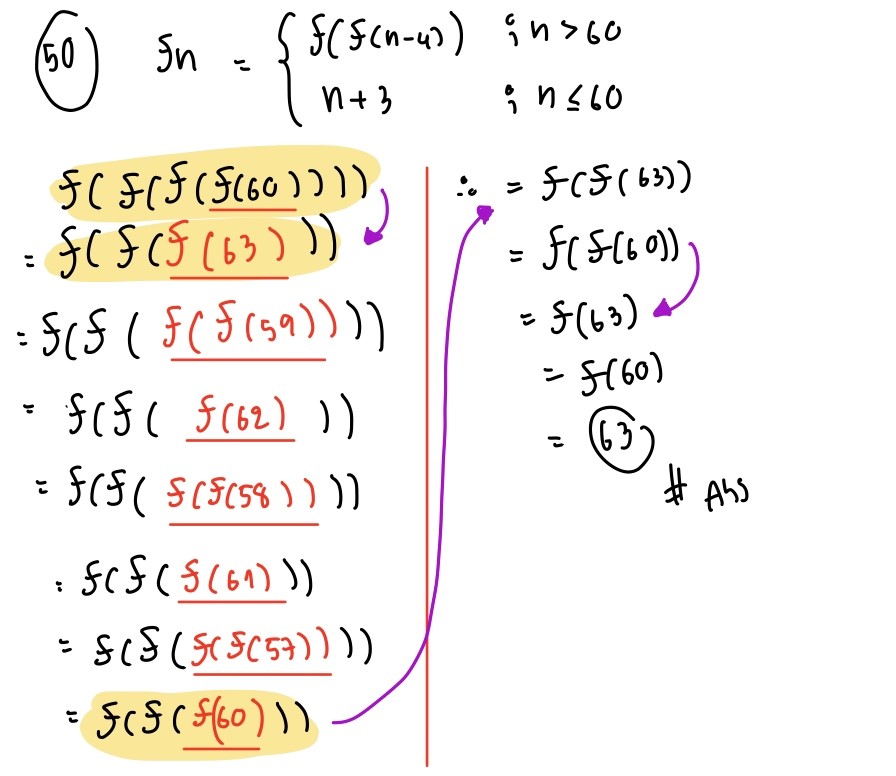 50 fn = { f(f(n-4)) ; n > 60
n + 3 ; n ≤ 60
f(f(f(f(60))))
= f(f(f(63)))
= f(f(f(f(59))))
= f(f(f(62)))
= f(f(f(f(58))))
= f(f(f(61)))
= f(f(f(f(57))))
= f(f(f(60)))
∴ = f(f(63))
= f(f(60))
= f(63)
= f(60)
= 63
# Ans